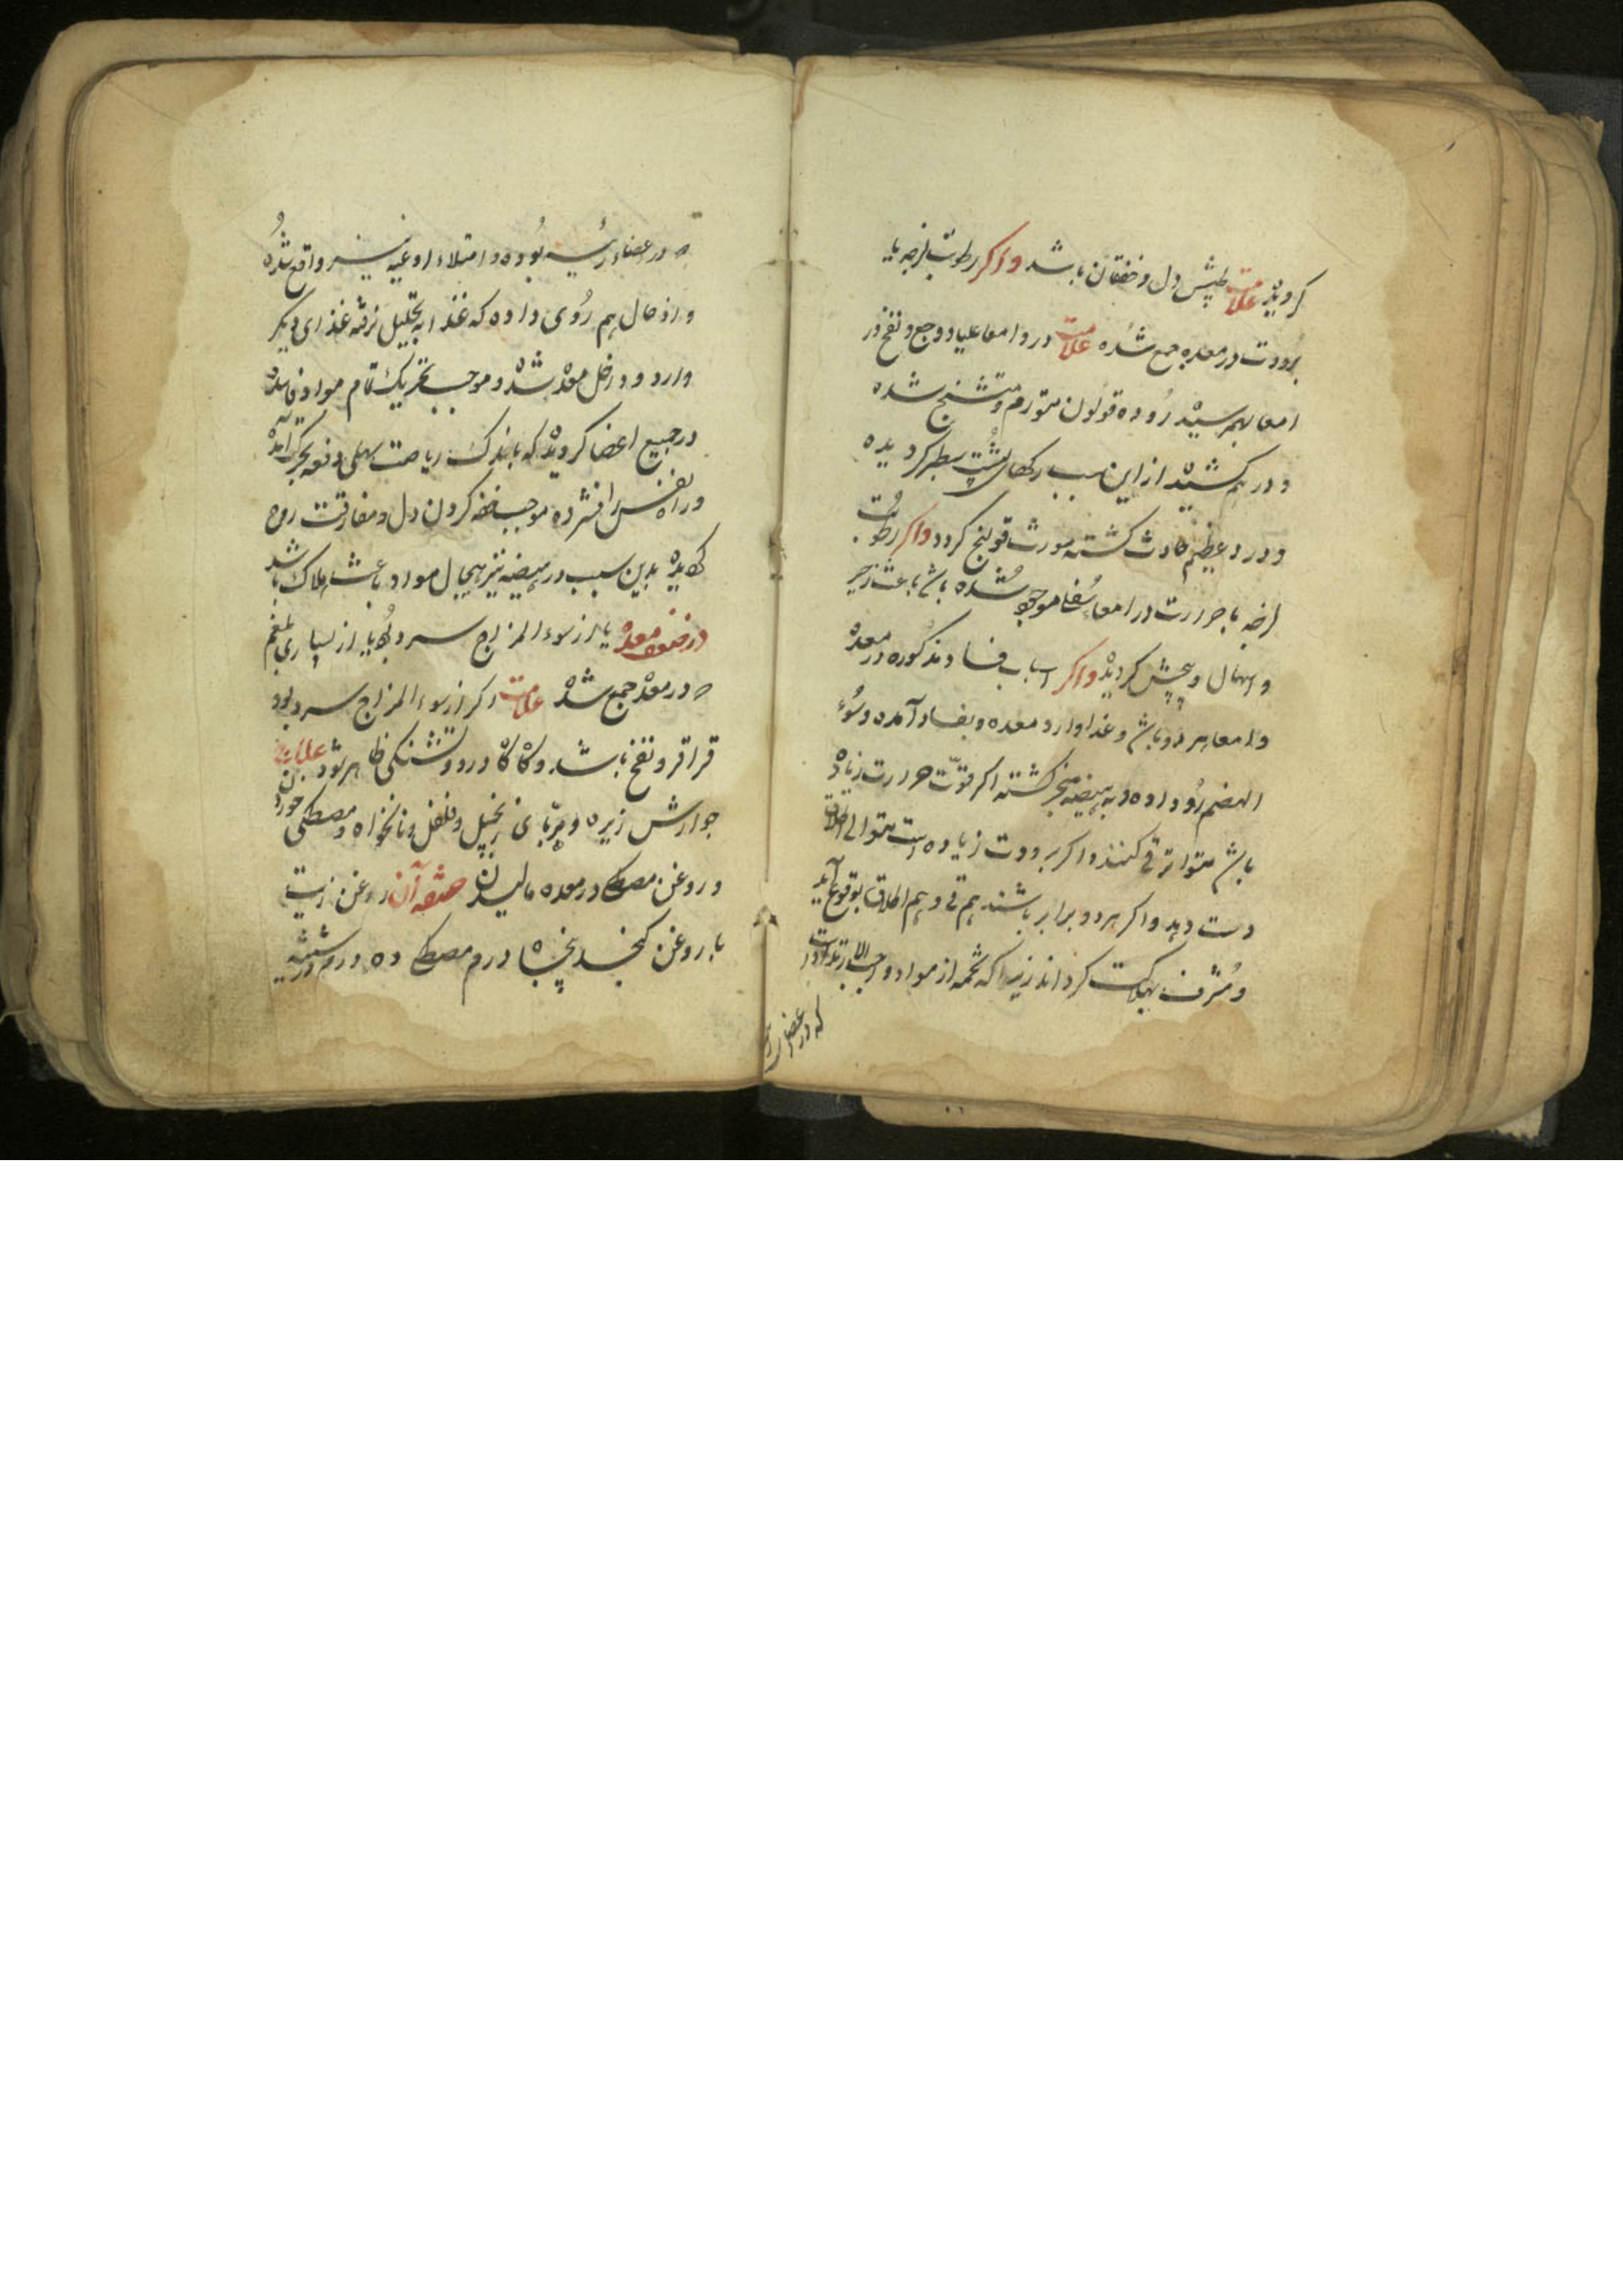 کردیده علامت طپش دل و خفقان باشد واکر رطوبت لزجه با
برودت در معده جمع شده علامت درد امعا علیا و وجع و نفخ در
امعا بهم رسیده روده قولون متورم و متشنج شده
و در هم کشیده از این سبب رکهای پشت سطبر کردیده
و درد عظیم حادث کشته مورث قولنج کردد واکر رطوبت
لزجه با حرارت در امعا سفلا موجود شده باشد باعث زحیر
و اسهال و پیچش کردیده واکر اسباب فساد مذکوره در معده
و امعا هر دو باشد و غذا وارد معده و بفساد آمده و سوء
الهضم رو داده و به هیضه منجر کشته اکر قوت حرارت زیاده
باشد متواتر قی کنند واکر برودت زیاده است متوالی اطلاق
دست دهد واکر هر دو برابر باشند هم قی و هم اطلاق بوقوع آید
و مشرف بهلاکت کرداند زیرا که تخمه از مواد
که در اعضای
در اعضاء رئیسه بوده و امتلاء اوعیه نیز واقع شده
و از حال هم روی داده که غذا به تحلیل نرفته غذای دیکر
وارد و داخل معده شده و موجب تحریک تمام مواد فاسده
در جمیع اعضا کردیده که باندک ریاضت سهلی دفعه بحرکت آمده
و راه نفس را فشرده موجب خفه کردن دل و مفارقت روح
کردیده بدین سبب در هیضه نیز هیجان مواد باعث هلاک باشد
در ضعف معده یا از سوء المزاج سرد بود یا از بسیاری بلغم
که در معده جمع شده علامت اکر از سوء المزاج سرد بود
قراقر و نفخ باشد و کاه کاه درد و تشنکی ظاهر شود علاج آن
جوارش زیره و مربای زنجبیل و فلفل و نانخواه و مصطکی خوردن
و روغن مصطکی در معده مالیدن صفه آن روغن زیت
یا روغن کنجد پنجاه درم مصطکی ده درم در شیشه